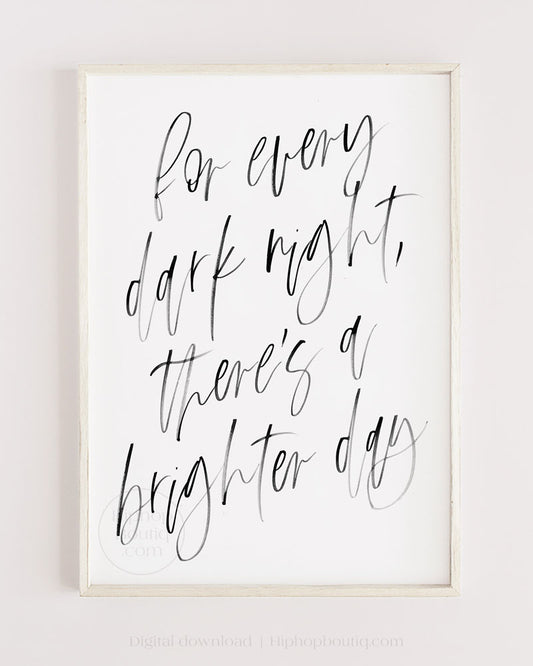 for every
dark night,
there's a
brighter day
hiphop
boutiq
.com
Digital download | Hiphopboutiq.com